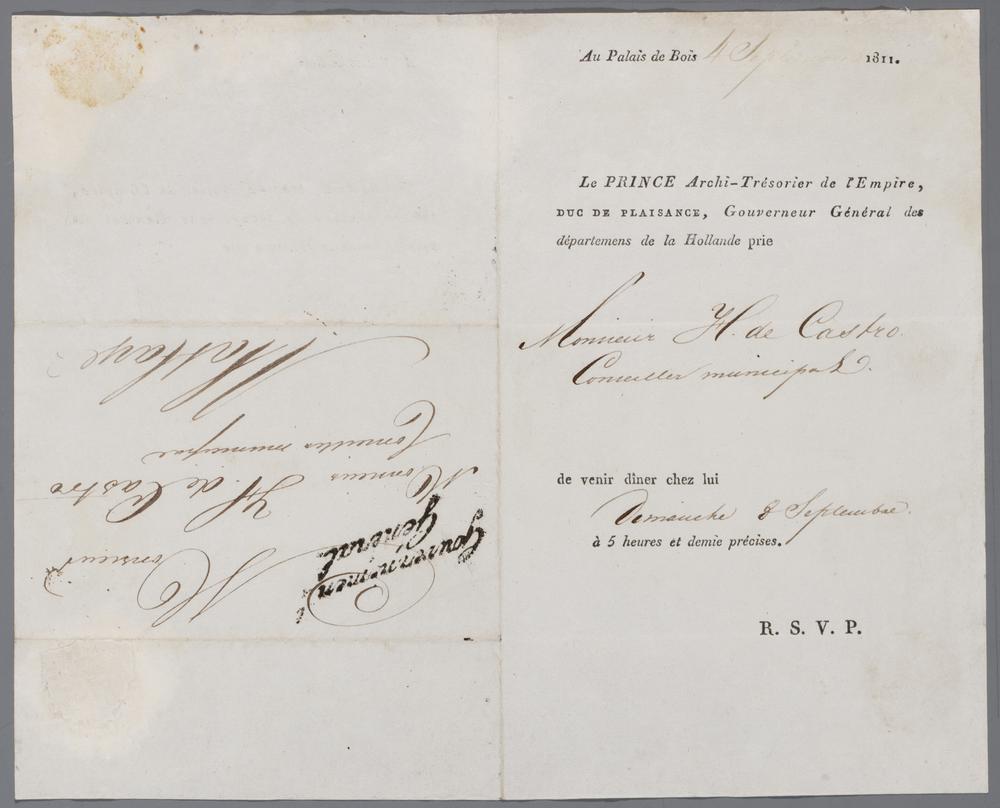 Au Palais de Bois 4 Septembre 1811.
Le PRINCE Archi-Trésorier de l'Empire,
DUC DE PLAISANCE, Gouverneur Général des
départemens de la Hollande prie
Monsieur H. de Castro.
Conseiller municipal.
de venir dîner chez lui
Dimanche 8 Septembre.
à 5 heures et demie précises.
R. S. V. P.
Gouvernement
Général
Monsieur
Monsieur H. de Castro
Conseiller municipal